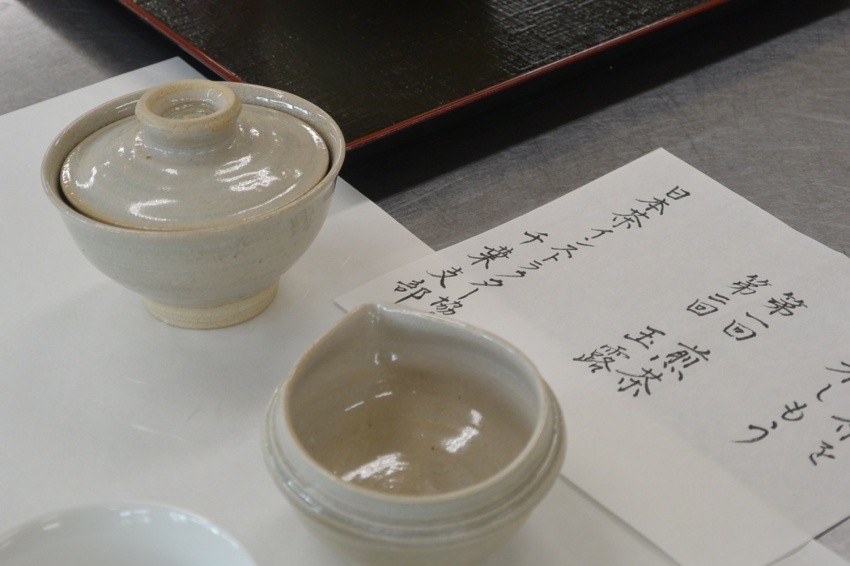 茶を
しもう
第一回 煎茶
第二回 玉露
日本茶インストラクター協
千葉支部